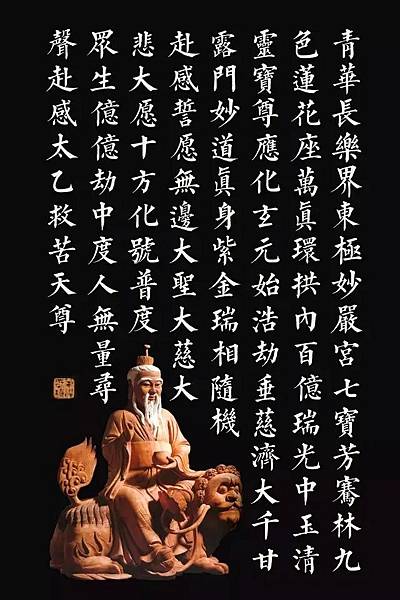 青華長樂界東極妙嚴宮七寶芳騫林九
色蓮花座萬眞環拱內百億瑞光中玉清
靈寶尊應化玄元始浩劫垂慈濟大千甘
露門妙道眞身紫金瑞相隨機
赴感誓愿無邊大聖大慈大
悲大愿十方化號普度
眾生億億劫中度人無量尋
聲赴感太乙救苦天尊